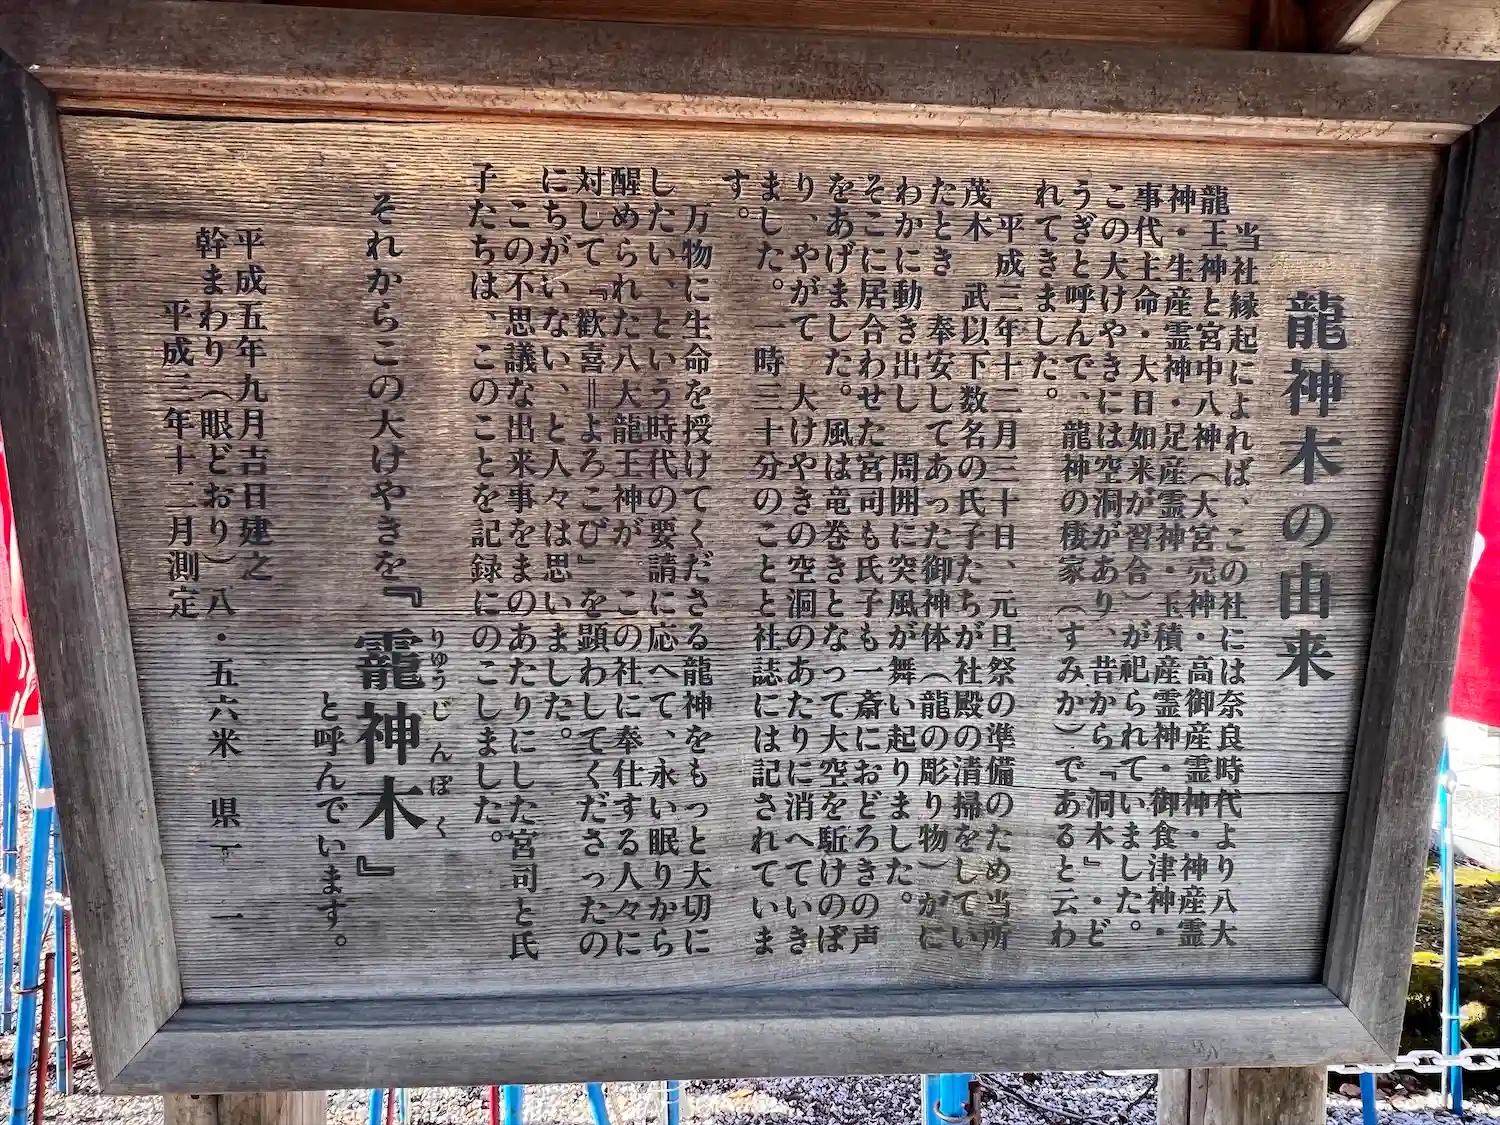 龍神木の由来
当社縁起によれば、この社には奈良時代より八大
龍王神と宮中八神（大宮売神・高御産霊神・神産霊
神・生産霊神・足産霊神・玉積産霊神・御食津神・
事代主命・大日如来が習合）が祀られていました。
この大けやきには空洞があり、昔から「洞木」・ど
うぎと呼んで、龍神の棲家（すみか）であると云わ
れてきました。
平成三年十二月三十日、元旦祭の準備のため当所
茂木 武以下数名の氏子たちが社殿の清掃をしてい
たとき 奉安してあった御神体（龍の彫り物）がに
わかに動き出し 周囲に突風が舞い起りました。
そこに居合わせた宮司も氏子も一斎におどろきの声
をあげました。風は竜巻きとなって大空を駈けのぼ
り、やがて 大けやきの空洞のあたりに消へていき
ました。一時三十分のことと社誌には記されていま
す。
万物に生命を授けてくださる龍神をもっと大切に
したい、という時代の要請に応へて、永い眠りから
醒められた八大龍王神が この社に奉仕する人々に
対して「歓喜＝よろこび」を顕わしてくださったの
にちがいない、と人々は思いました。
この不思議な出来事をまのあたりにした宮司と氏
子たちは、このことを記録にのこしました。
それからこの大けやきを『龗神木』
りゅうじんぼく
と呼んでいます。
平成五年九月吉日建之
幹まわり（眼どおり）八・五六米 県下一
平成三年十二月測定